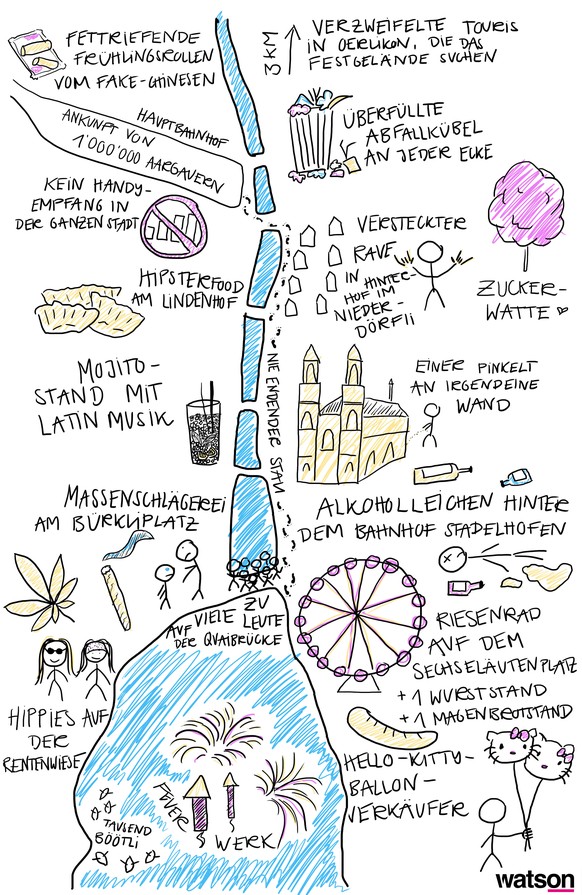 FETTRIEFENDE
FRÜHLINGSROLLEN
VOM FAKE-CHINESEN
3 KM
VERZWEIFELTE TOURIS
IN OERLIKON, DIE DAS
FESTGELÄNDE SUCHEN
HAUPTBAHNHOF
ANKUNFT VON
1'000'000 AARGAUERN
ÜBERFÜLLTE
ABFALLKÜBEL
AN JEDER ECKE
KEIN HANDY-
EMPFANG IN
DER GANZEN STADT
VERSTECKTER
RAVE
IN HINTER-
HOF IM
NIEDER-
DÖRFLI
ZUCKER-
WATTE
HIPSTERFOOD
AM LINDENHOF
MOJITO-
STAND MIT
LATIN MUSIK
NIE ENDENDER STAU
EINER PINKELT
AN IRGENDEINE
WAND
MASSENSCHLÄGEREI
AM BÜRKLIPLATZ
ALKOHOLLEICHEN HINTER
DEM BAHNHOF STADELHOFEN
VIELE ZU
LEUTE
AUF
DER QUAIBRÜCKE
RIESENRAD
AUF DEM
SECHSELÄUTENPLATZ
+ 1 WURSTSTAND
+ 1 MAGENBROTSTAND
HIPPIES AUF
DER
RENTENWIESE
HELLO-KITTY-
BALLON-
VERKÄUFER
FEUER
WERK
TAUSEND
BÖÖTLI
watson